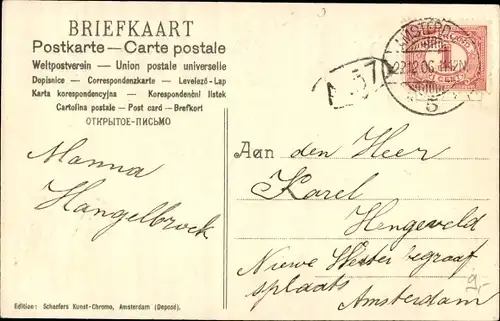 BRIEFKAART
Postkarte — Carte postale
Weltpostverein — Union postale universelle
Dopisnice — Correspondenzkarte — Levelező-Lap
Karta korespondencyjna — Korespondenční listek
Cartolina postale — Post card — Brefkort
ОТКРЫТОЕ-ПИСЬМО
AMSTERD
22.12.06. 11-12N
5
1
CENT
A 57
Manna
Hangelbrock
Aan den Heer
Karel
Hengeveld
Nieuwe Wester begraaf
splaats
Amsterdam
9,-
Edition: Schaefers Kunst-Chromo, Amsterdam (Deposé).